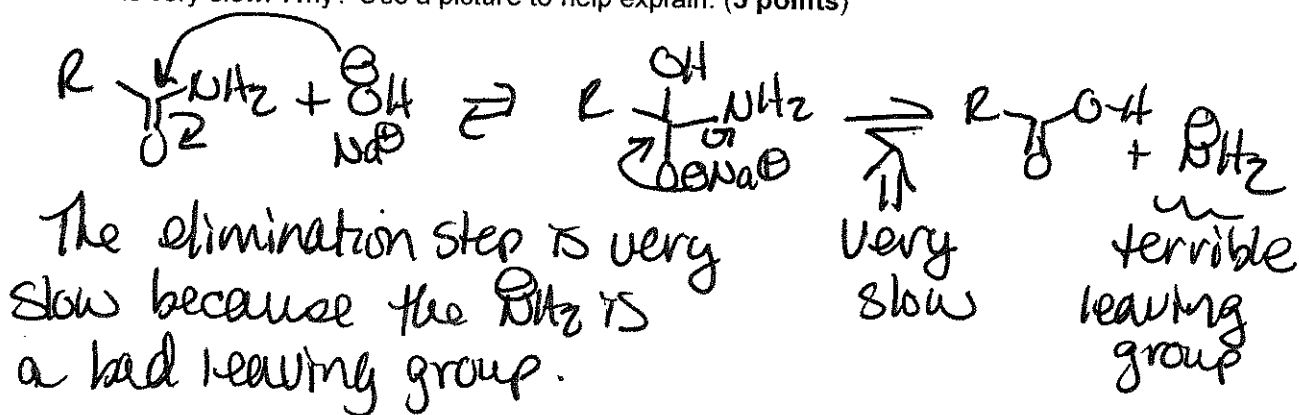 (5 points)
R NH2 + ⊖OH Na⊕ ⇌ R OH NH2 O⊖Na⊕ ⇌ R O-H O + ⊖NH2
The elimination step is very
slow because the ⊖NH2 is
a bad leaving group.
very
slow
terrible
leaving
group